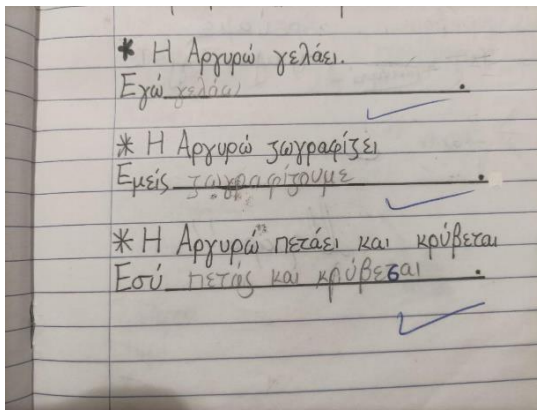 * Η Αργυρώ γελάει.
Εγώ γελάω.
* Η Αργυρώ ζωγραφίζει
Εμείς ζωγραφίζουμε.
* Η Αργυρώ πετάει και κρύβεται
Εσύ πετάς και κρύβεσαι.